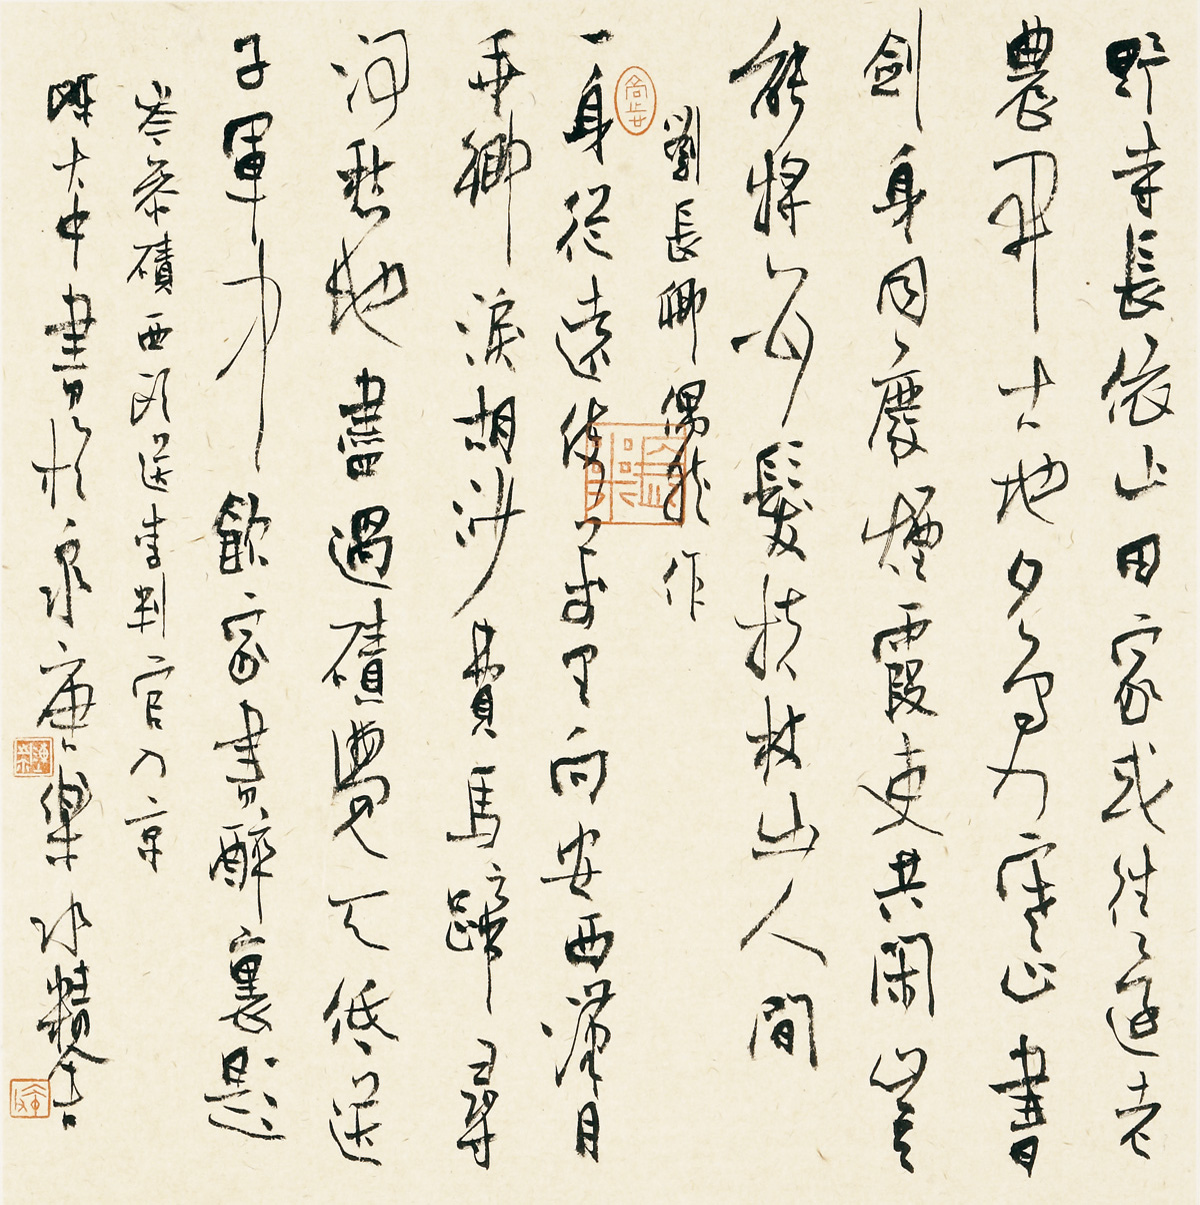 野寺長依止田家或往還老
農開古地夕鳥入寒山書
劍身同廢煙霞吏共閑豈
能將白髮扶杖出人間
劉長卿偶然作
一身從遠使萬里向安西漢月
垂鄉淚胡沙費馬蹄尋
河愁地盡過磧覺天低送
子軍中飲家書醉裏題
岑參磧西頭送李判官入京
陳大中書於泉唐樂水精舍